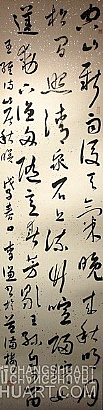 空山新雨後天氣晚来秋明月
松間照清泉石上流竹喧歸浣女
蓮動下漁舟随意春芳歇王孫自可留
王維詩山居秋暝
CHANGSHUART